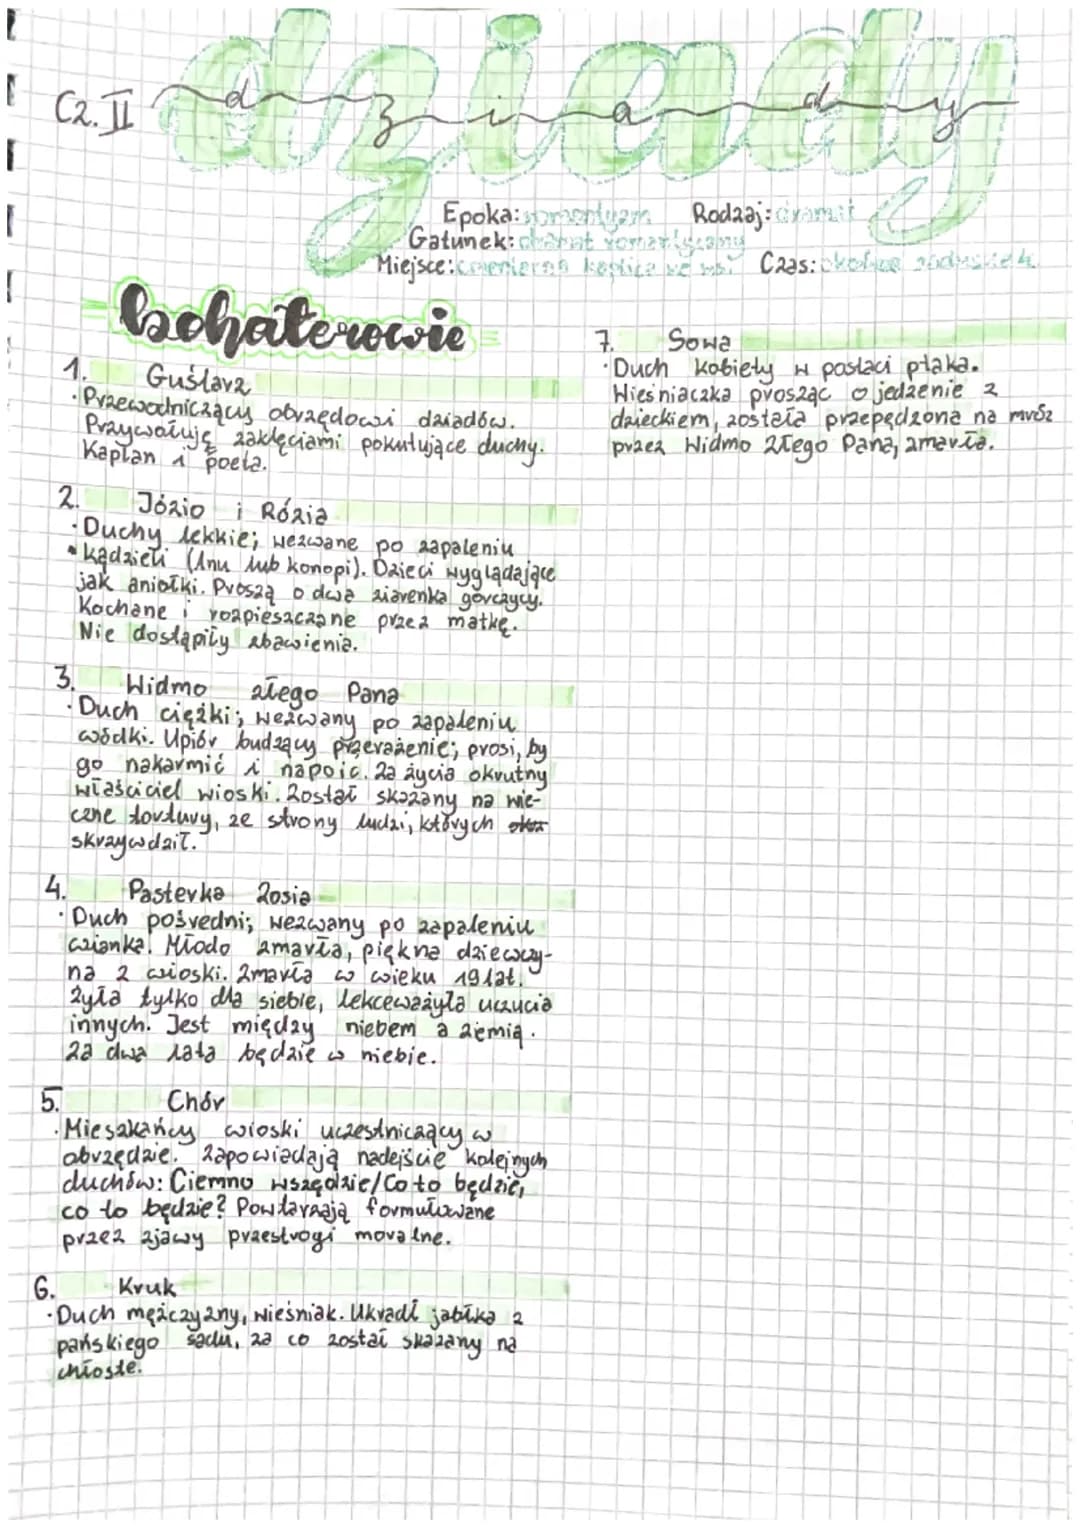 Cz. II dziady
dziady
Epoka: romantyzm Rodzaj: dramat
Gatunek: dramat romantyczny
Miejsce: cmentarna kaplica we wsi Czas: okolice zaduszek
bohaterowie
1. Guślarz
·Przewodniczący obrzędowi dziadów.
Przywołuję zaklęciami pokutujące duchy.
Kapłan i poeta.
2. Józio i Rózia
·Duchy lekkie; wezwane po zapaleniu
kądzieli (lnu lub konopi). Dzieci wyglądające
jak aniołki. Proszą o dwa ziarenka gorczycy.
Kochane i rozpieszczane przez matkę.
Nie dostąpiły zbawienia.
3. Widmo złego Pana
·Duch ciężki; wezwany po zapaleniu
wódki. Upiór budzący przerażenie; prosi, by
go nakarmić i napoić. Za życia okrutny
właściciel wioski. Został skazany na wie-
czne tortury, ze strony ludzi, których
skrzywdził.
4. Pasterka Zosia
·Duch pośredni; wezwany po zapaleniu
wianka. Młodo zmarła, piękna dziewczy-
na z wioski. Zmarła w wieku 19 lat.
Żyła tylko dla siebie, lekceważyła uczucia
innych. Jest między niebem a ziemią.
Za dwa lata będzie w niebie.
5. Chór
·Mieszkańcy wioski uczestniczący w
obrzędzie. Zapowiadają nadejście kolejnych
duchów: Ciemno wszędzie/Co to będzie,
co to będzie? Powtarzają formułowane
przez zjawy przestrogi moralne.
6. Kruk
·Duch mężczyzny, wieśniak. Ukradł jabłka z
pańskiego sadu, za co został skazany na
chłostę.
7. Sowa
·Duch kobiety w postaci ptaka.
Wieśniaczka prosząc o jedzenie z
dzieckiem, została przepędzona na mróz
przez Widmo Złego Pana, zmarła.